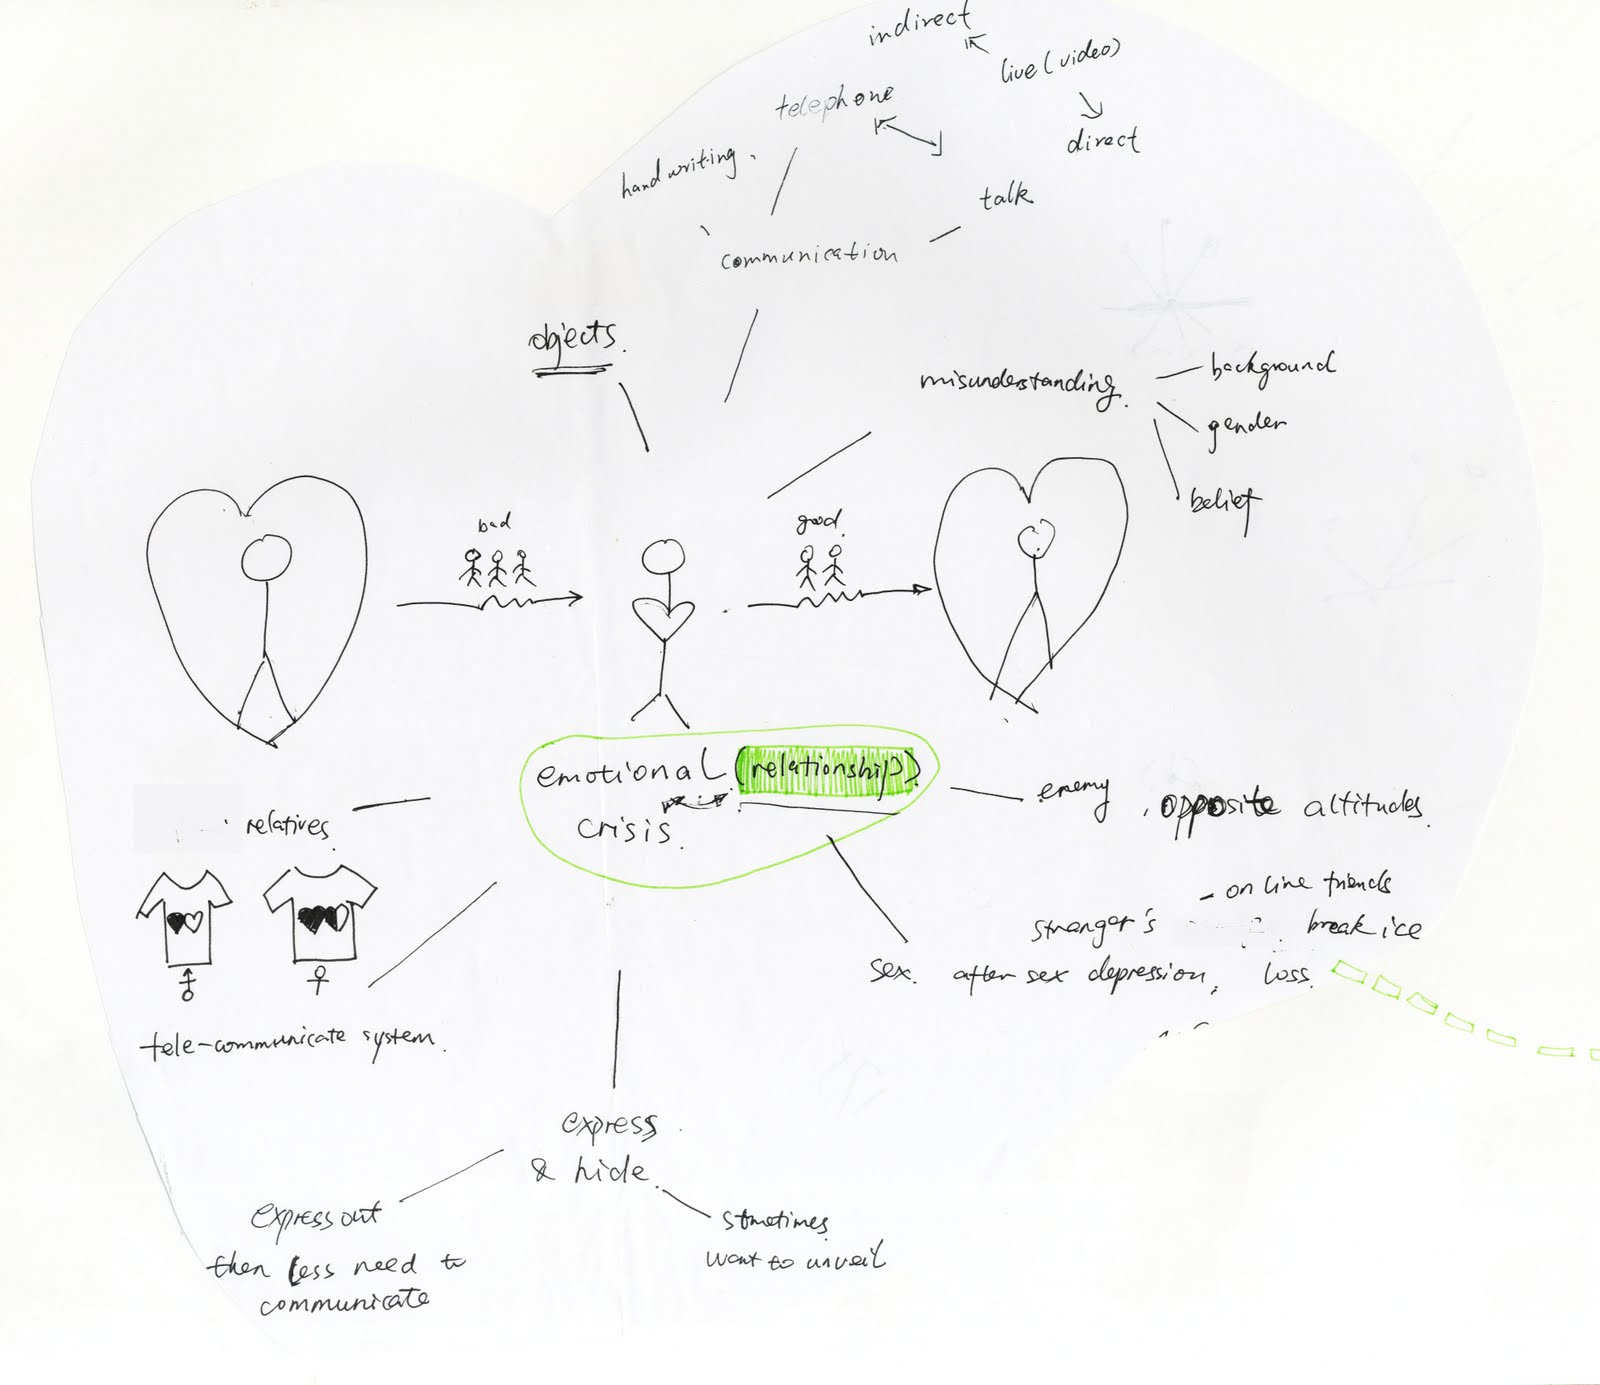 indirect
live (video)
telephone
direct
handwriting.
talk
communication
objects.
misunderstanding.
background
gender
belief
bad
good.
emotional (relationship)
crisis.
enemy
opposite altitudes.
relatives.
- on line friends
stranger's
break ice
sex. after sex depression, loss.
tele-communicate system.
express.
& hide.
express out
then less need to
communicate
stmetimes
want to unveil